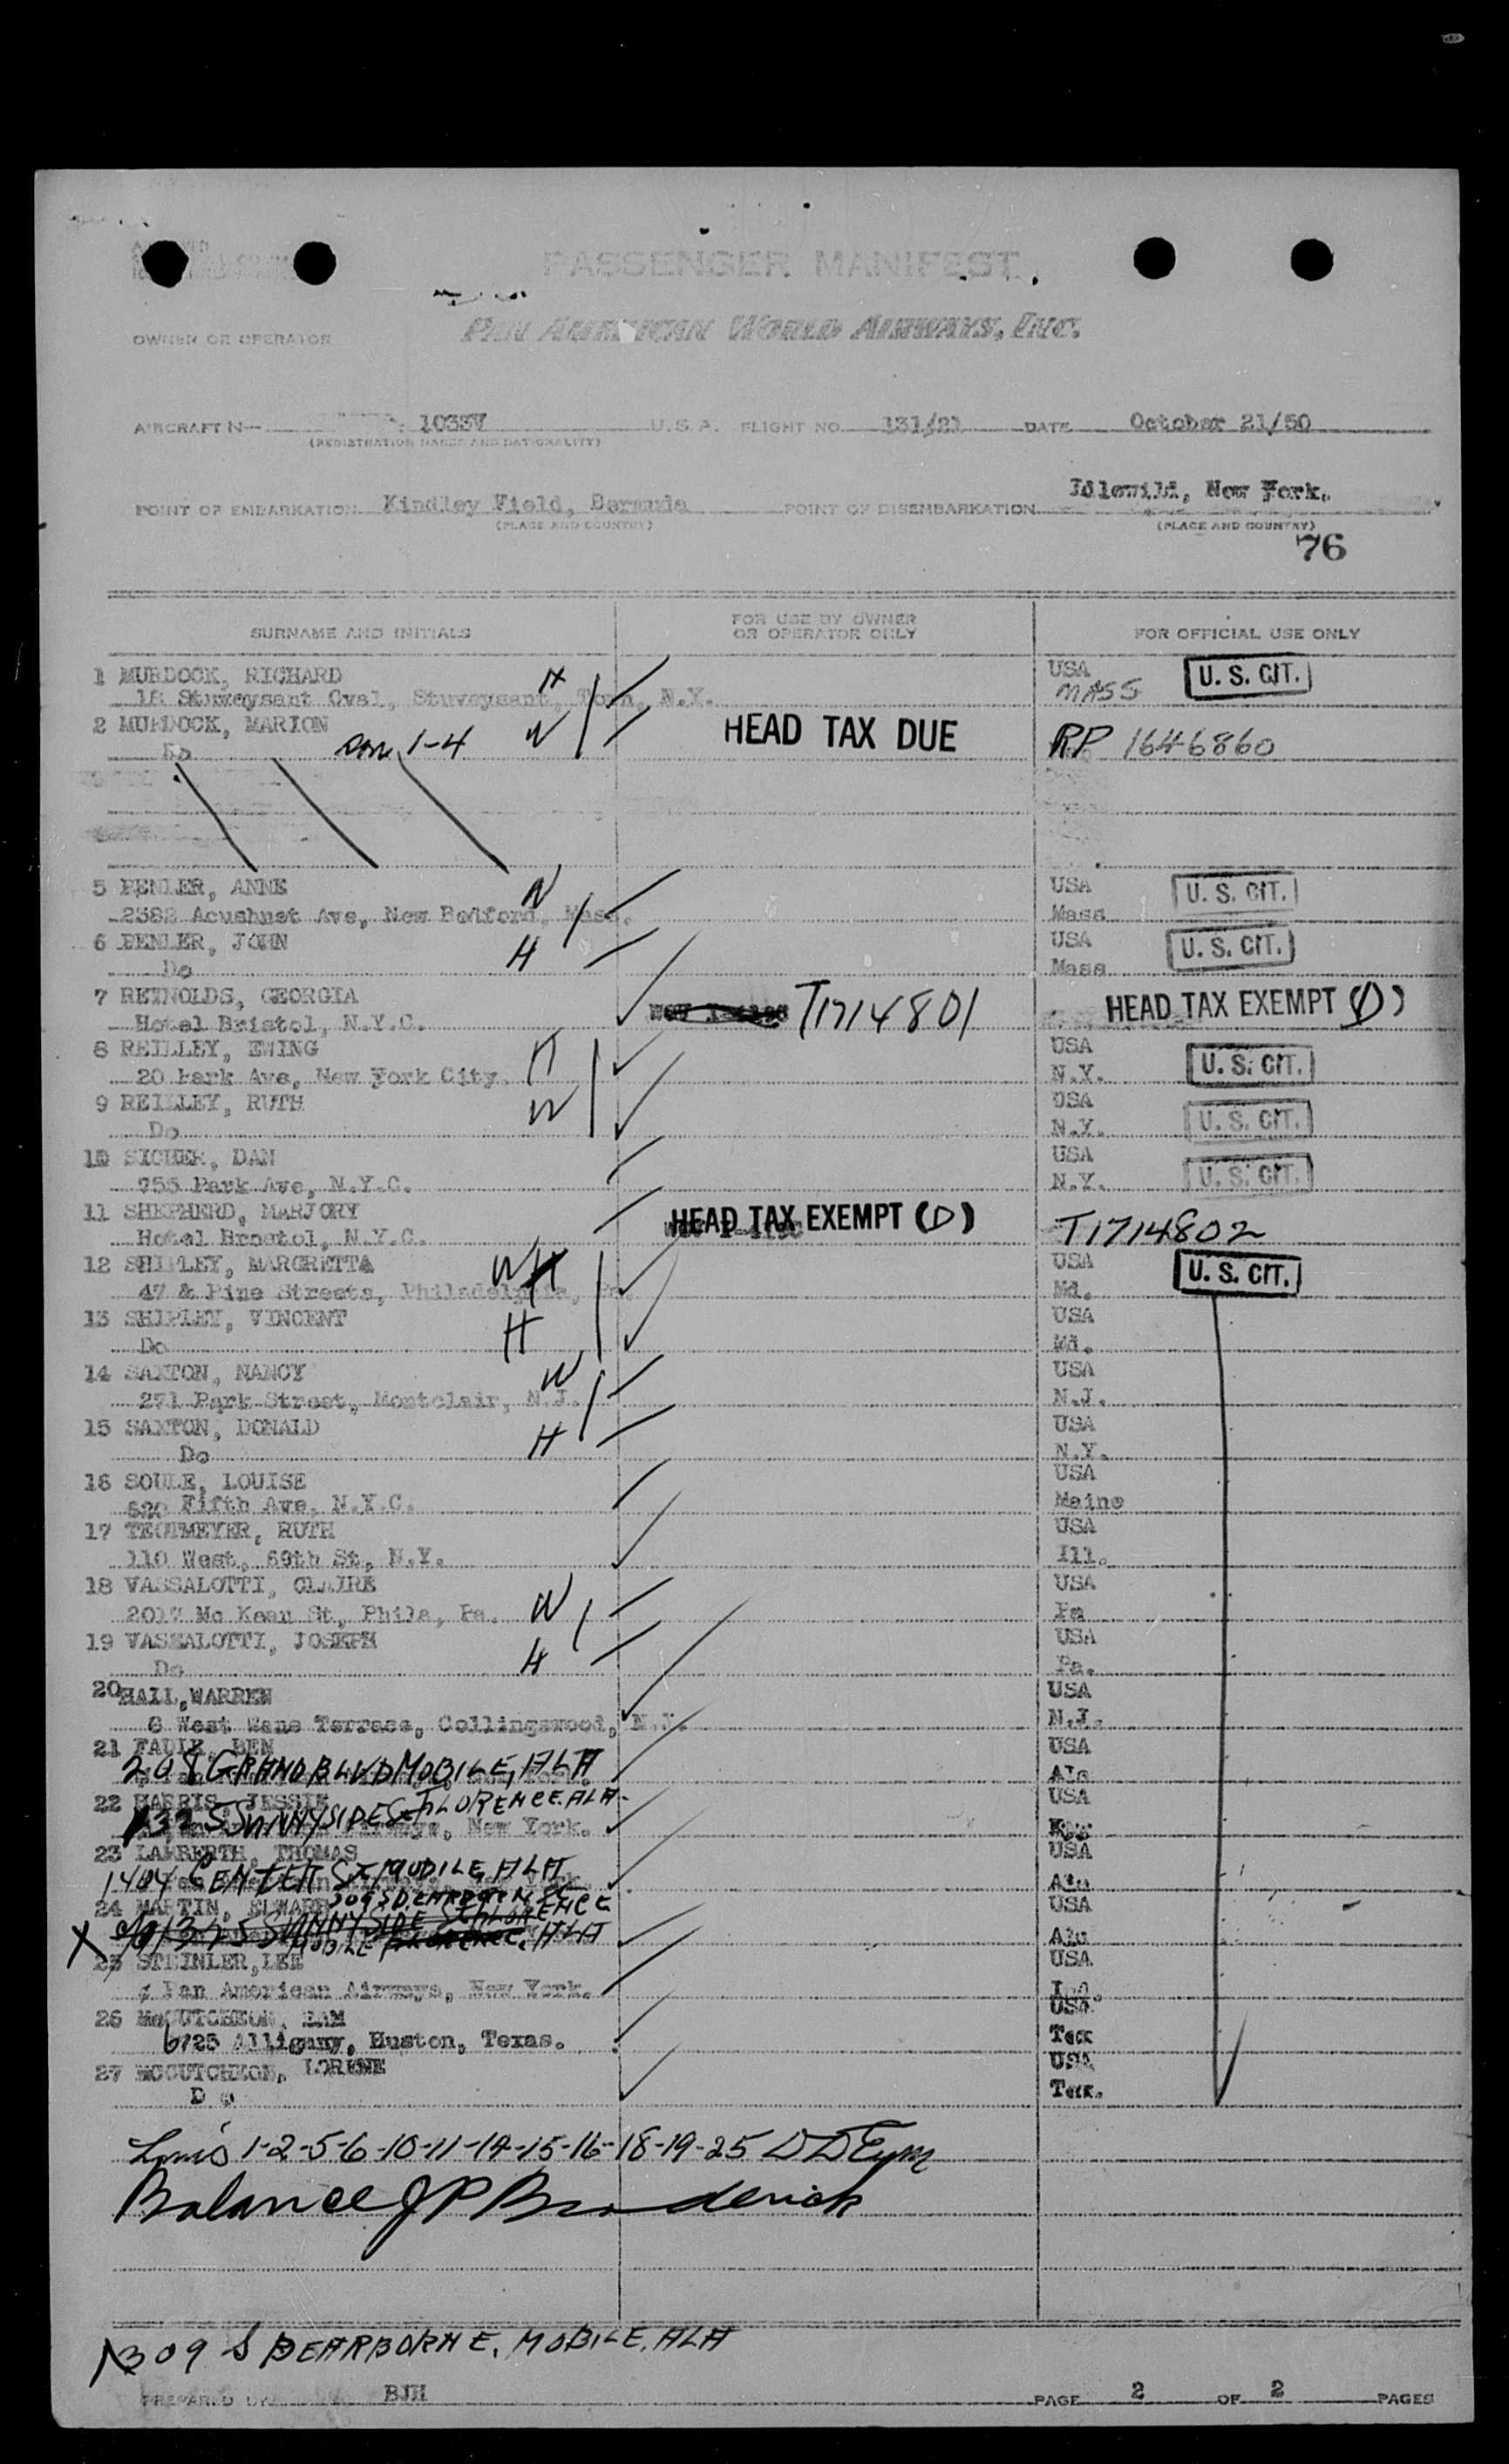 PASSENGER MANIFEST
OWNER OR OPERATOR PAN AMERICAN WORLD AIRWAYS, INC.
AIRCRAFT N- 1033V U.S.A. FLIGHT NO. 131/21 DATE October 21/50
(REGISTRATION MARKS AND NATIONALITY)
Idlewild, New York.
POINT OF EMBARKATION Kindley Field, Bermuda POINT OF DISEMBARKATION
(PLACE AND COUNTRY) (PLACE AND COUNTRY)
76
SURNAME AND INITIALS FOR USE BY OWNER OR OPERATOR ONLY FOR OFFICIAL USE ONLY
1 MURDOCK, RICHARD H USA U. S. CIT.
18 Stuveysant Oval, Stuveysant, Town, N.Y. MASS
2 MURDOCK, MARION W HEAD TAX DUE RP 1646860
Do 1-4
5 PENLER, ANNE W USA U. S. CIT.
2382 Acushnet Ave, New Bedford, Mass. Mass
6 PENLER, JOHN H USA U. S. CIT.
Do Mass
7 REYNOLDS, GEORGIA T1714801 HEAD TAX EXEMPT (D)
Hotel Bristol, N.Y.C.
8 REILLEY, EWING H USA U. S. CIT.
20 Park Ave, New York City. N.Y.
9 REILLEY, RUTH W USA U. S. CIT.
Do N.Y.
10 SICHER, DAN USA U. S. CIT.
755 Park Ave, N.Y.C. N.Y.
11 SHEPHERD, MARJORY HEAD TAX EXEMPT (D) T1714802
Hotel Brostol, N.Y.C.
12 SHIPLEY, MARGRETTA W USA U. S. CIT.
47 & Pine Streets, Philadelphia, Pa. Md.
13 SHIPLEY, VINCENT H USA
Do Md.
14 SAXTON, NANCY W USA
271 Park Street, Montclair, N.J. N.J.
15 SAXTON, DONALD H USA
Do N.Y.
16 SOULE, LOUISE USA
Fifth Ave, N.Y.C. Maine
17 TEGTMEYER, RUTH USA
110 West, 69th St, N.Y. Ill.
18 VASSALOTTI, CLAIRE W USA
2017 Mc Kean St, Phila, Pa. Pa
19 VASSALOTTI, JOSEPH H USA
Do Pa.
20 HALL, WARREN USA
6 West Mane Terrace, Collingswood, N.J. N.J.
21 FADIE, BEN USA
208 GRAND BLVD MOBILE, ALA Ala
22 HARRIS, JESSIE USA
1325 SUNNYSIDE ST FLORENCE. ALA.
23 LAMBERTH, THOMAS USA
1404 CENTER ST MOBILE, ALA Ala
24 MARTIN, EDWARD 309 S DEARBORN ST USA
X 1325 SUNNYSIDE ST FLORENCE Ala
MOBILE FLORENCE. ALA
25 STEINLER, LEE USA
% Pan American Airways, New York. Ind.
26 McCUTCHEON, SAM USA
6725 Alligany, Huston, Texas. Tex
27 MCCUTCHEON, LORENE USA
D o Tex.
1-2-5-6-10-11-14-15-16-18-19-25
Balance J P Broderick
X 309 S DEARBORNE, MOBILE, ALA
PREPARED BY BJH PAGE 2 OF 2 PAGES